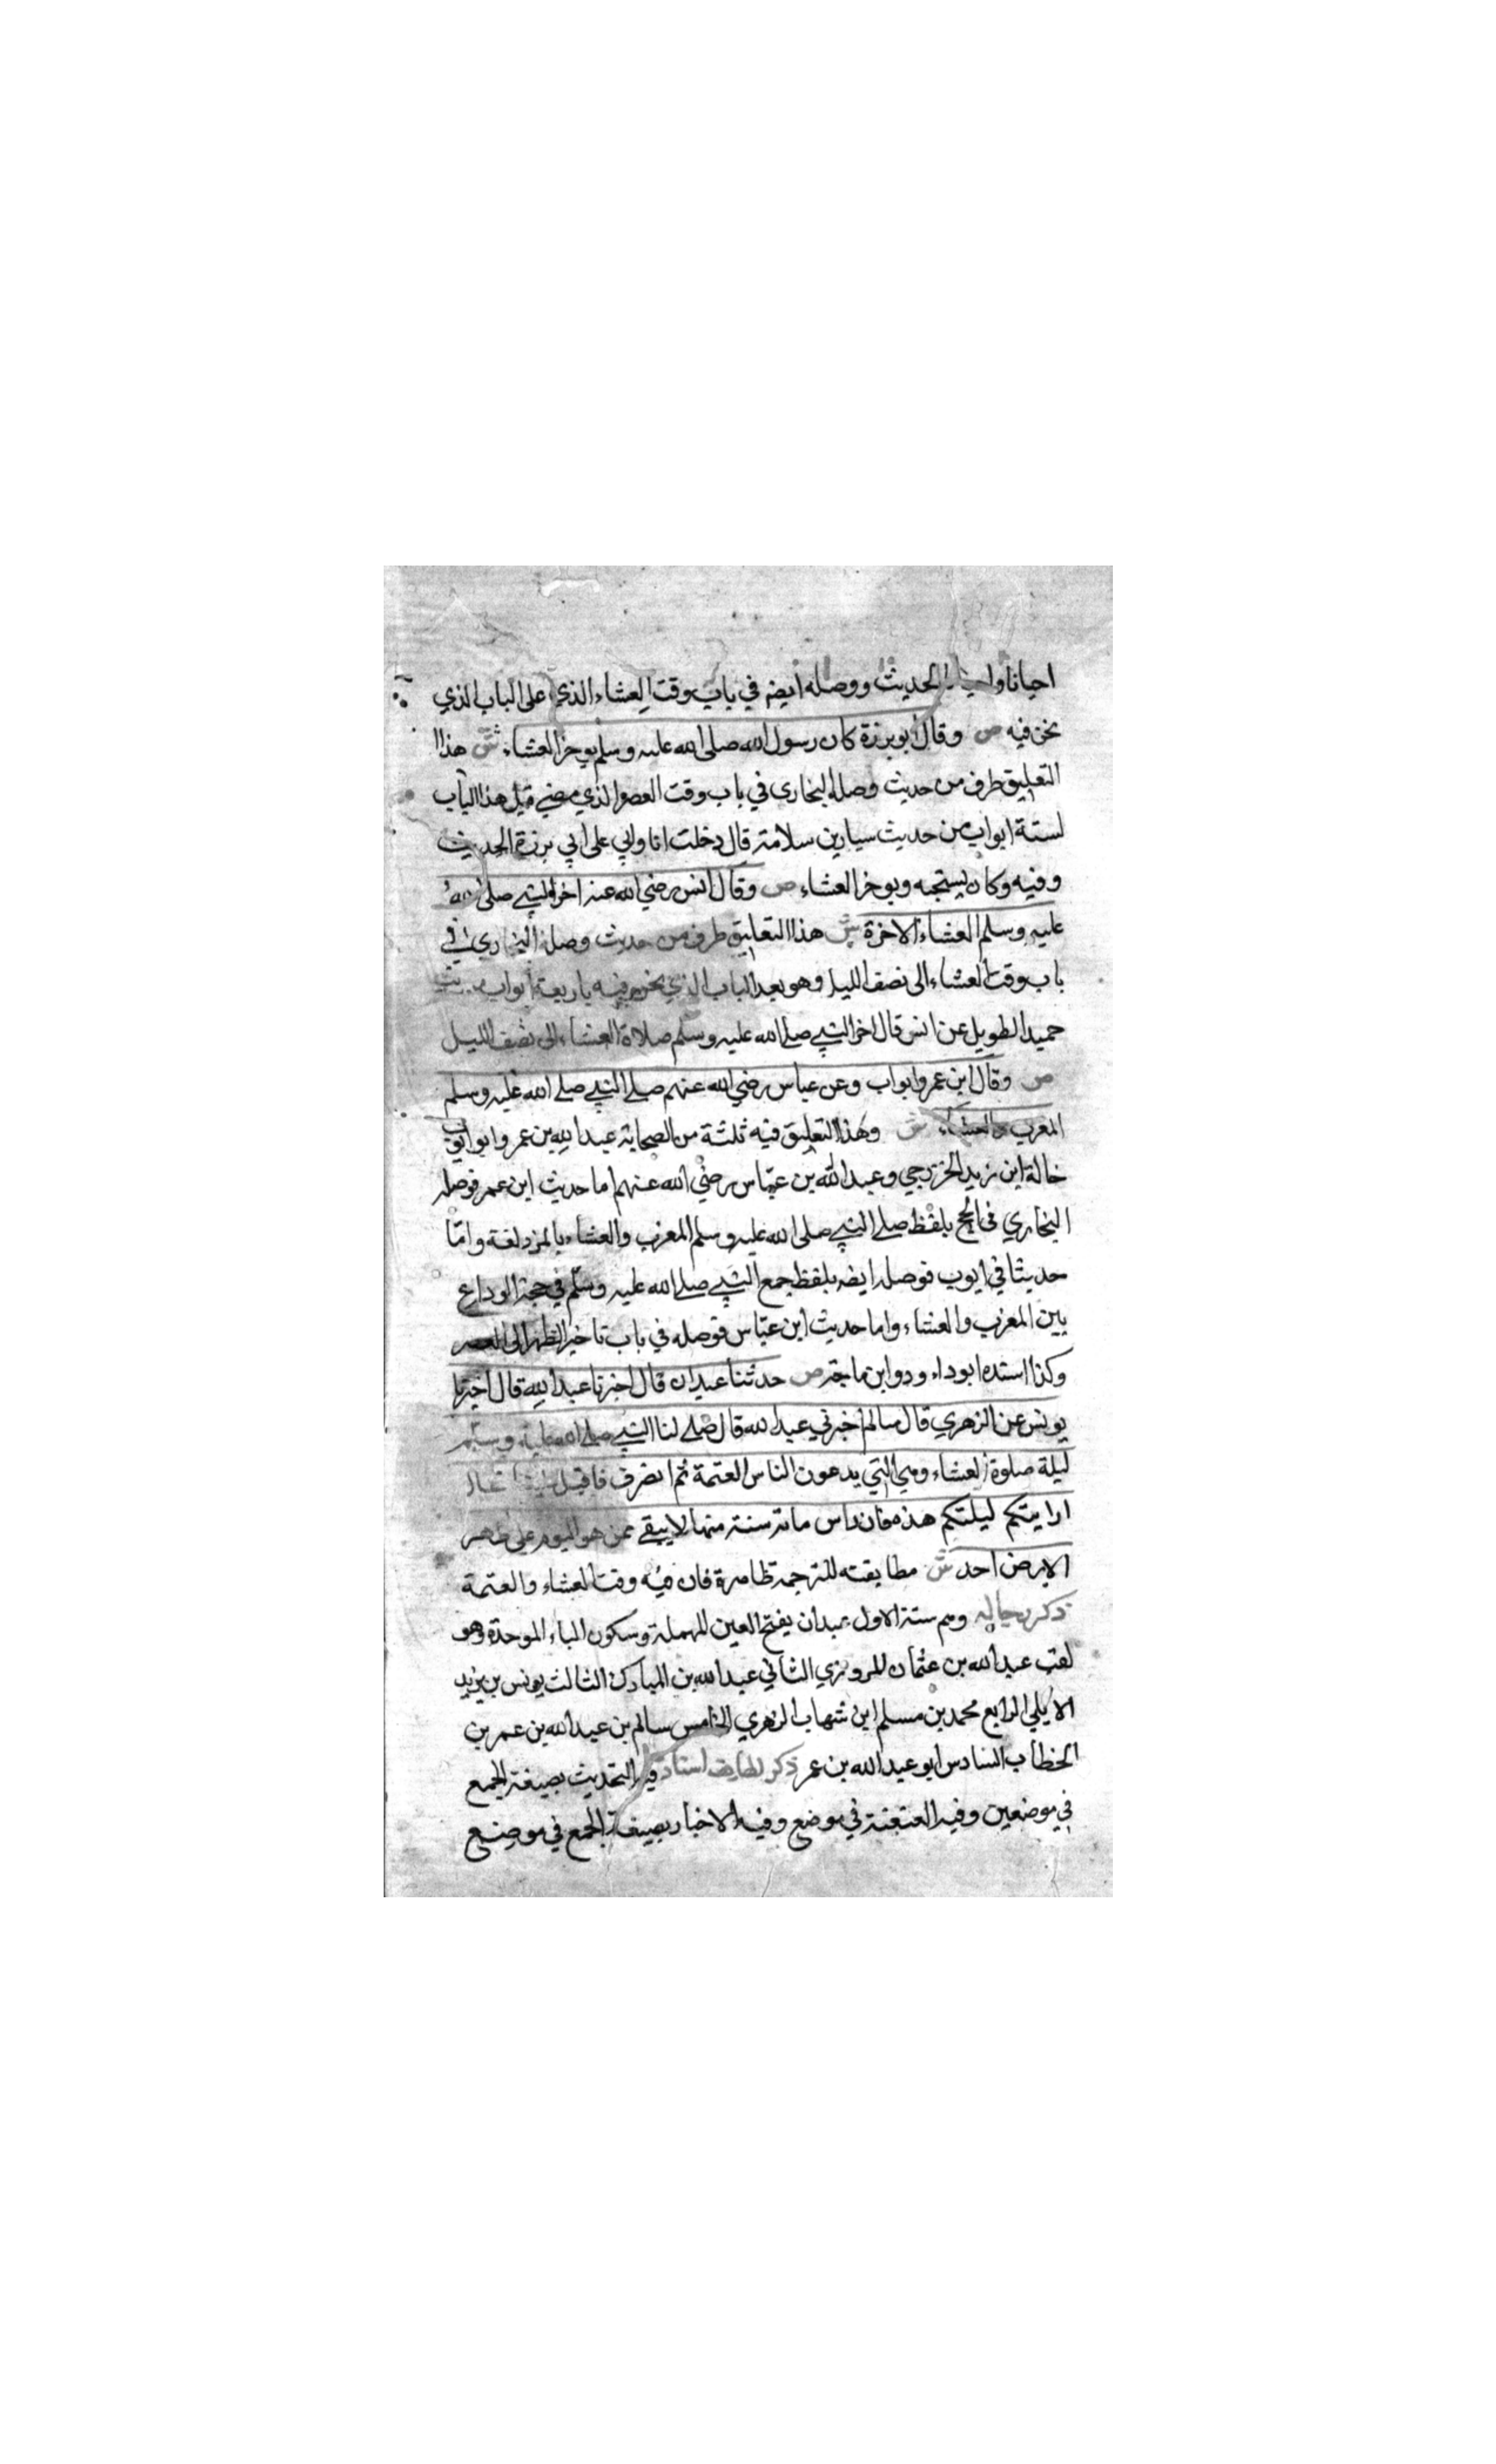 احيانا واحيانا الحديث ووصله ايضه في باب وقت العشاء الذي على الباب الذي
نحن فيه ص وقال ابو برزة كان رسول الله صلى الله عليه وسلم يوخر العشاء ش هذا
التعليق طرف من حديث وصله البخارى في باب وقت العصر الذي مضى قبل هذا الباب
لستة ابواب من حديث سيار بن سلامة قال دخلت انا وابي على ابي برزة الحديث
وفيه وكان يستحبه ويوخر العشاء ص وقال انس رضي الله عنه اخر النبي صلى الله
عليه وسلم العشاء الاخرة ش هذا التعليق طرف من حديث وصله البخاري في
باب وقت العشاء الى نصف الليل وهو بعد الباب الذي نحن فيه باربعة ابواب
حميد الطويل عن انس قال اخر النبي صلى الله عليه وسلم صلاة العشاء الى نصف الليل
ص وقال ابن عمر وابواب وعن عباس رضي الله عنهم صلى النبي صلى الله عليه وسلم
المغرب والعشاء ش وهذا التعليق فيه ثلثة من الصحابة عبد الله بن عمر وابو ايوب
خالة ابن زيد الخزرجي وعبد الله بن عباس رضي الله عنهم اما حديث ابن عمر فوصله
البخاري في الحج بلفظ صلى النبي صلى الله عليه وسلم المغرب والعشاء بالمزدلفة واما
حديثا في ايوب فوصله ايضه بلفظ جمع النبي صلى الله عليه وسلم في حجة الوداع
بين المغرب والعشاء واما حديث ابن عباس فوصله في باب تاخير الظهر الى العصر
وكذا اسنده ابوداء ودوابن ماجة ص حدثنا عبدان قال اخبرنا عبد الله قال اخبرنا
يونس عن الزهري قال سالم اخبرني عبد الله قال صلى لنا النبي صلى الله عليه وسلم
ليلة صلوة العشاء وهي التي يدعون الناس العتمة ثم انصرف فاقبل
ارايتكم ليلتكم هذه فان راس مائة سنة منها لا يبقى ممن هو اليوم على ظهر
الارض احد ش مطابقته للترجمة ظاهرة فان فيه وقت العشاء والعتمة
ذكر رجاله وهم ستة الاول عبدان بفتح العين المهملة وسكون الباء الموحدة وهو
لقب عبد الله بن عثمان المروزي الثاني عبد الله بن المبارك الثالث يونس بن يزيد
الايلي الرابع محمد بن مسلم ابن شهاب الزهري الخامس سالم بن عبد الله بن عمر بن
الخطاب السادس ابو عبد الله بن عمر ذكر لطايف اسناده فيه التحديث بصيغة الجمع
في موضعين وفيه العنعنة في موضع وفيه الاخبار بصيغة الجمع في موضع